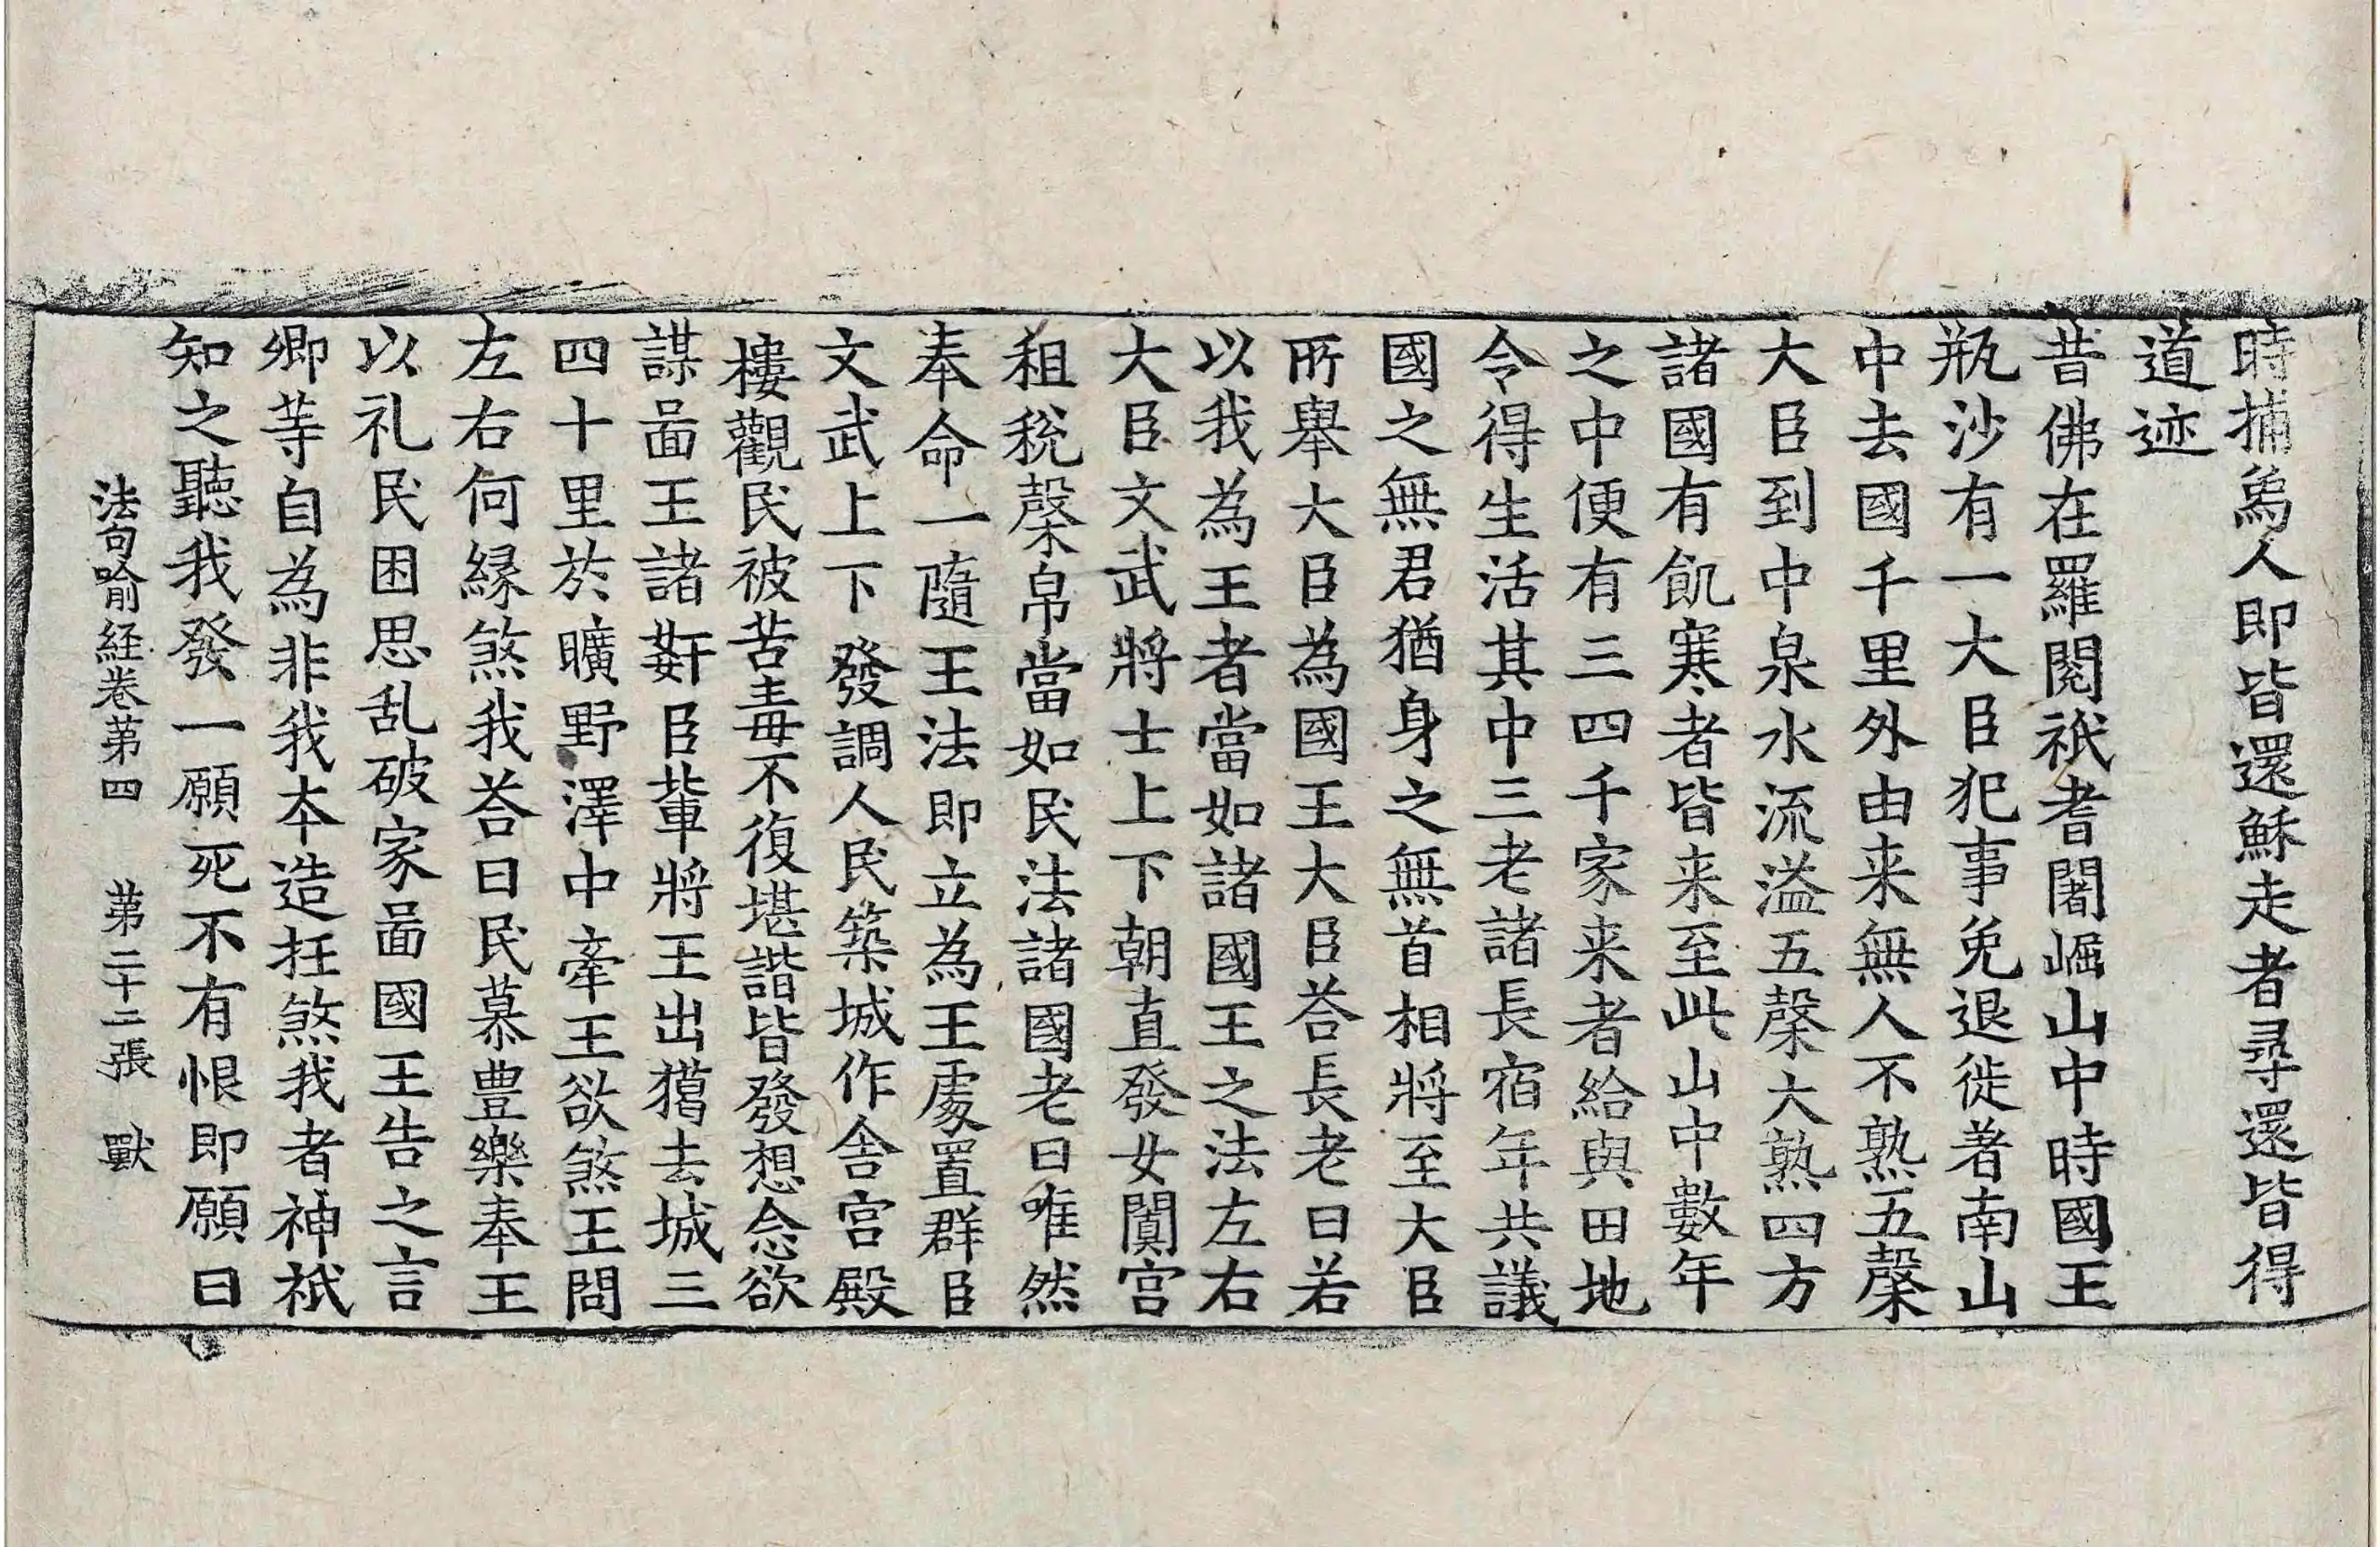 時捕爲人即皆還穌走者尋還皆得
道迹
昔佛在羅閱祇耆闍崛山中時國王
瓶沙有一大臣犯事免退徙著南山
中去國千里外由来無人不熟五糓
大臣到中泉水流溢五糓大熟四方
諸國有飢寒者皆来至此山中數年
之中便有三四千家来者給與田地
令得生活其中三老諸長宿年共議
國之無君猶身之無首相將至大臣
所舉大臣為國王大臣荅長老曰若
以我為王者當如諸國王之法左右
大臣文武將士上下朝直發女闐宫
租稅糓帛當如民法諸國老曰唯然
奉命一隨王法即立為王處置群臣
文武上下發調人民築城作舍宫殿
樓觀民被苦毒不復堪諧皆發想念欲
謀啚王諸姧臣輩將王出獦去城三
四十里於曠野澤中牽王欲煞王問
左右何縁煞我荅曰民慕豊樂奉王
以礼民困思乱破家啚國王告之言
卿䓁自為非我夲造抂煞我者神祇
知之聽我發一願死不有恨即願曰
法句喻経卷苐四 苐二十二張 獸